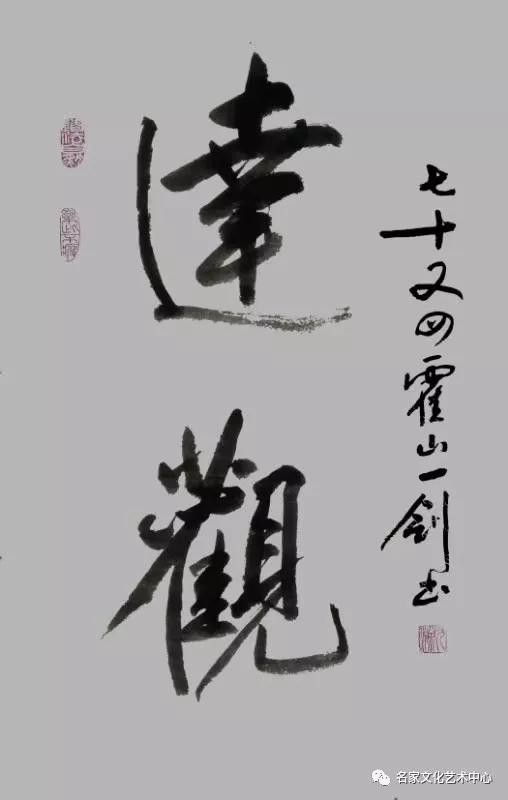 達觀
七十又四霍山一劍书
名家文化艺术中心